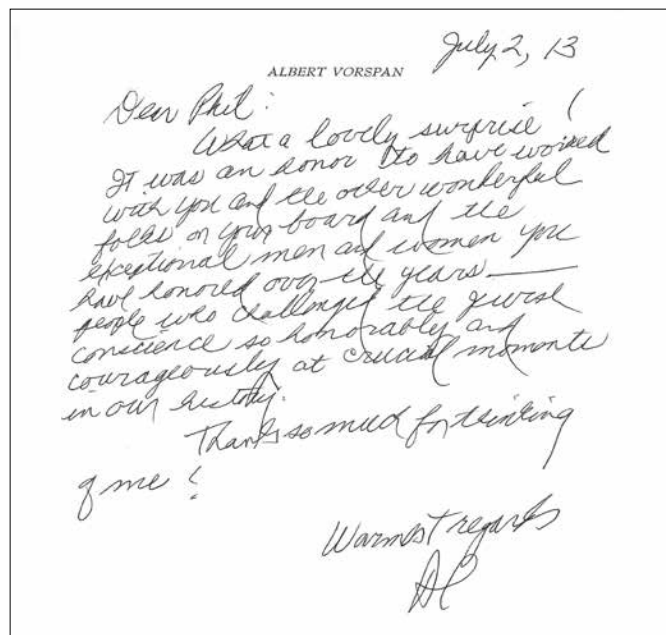 July 2, 13
ALBERT VORSPAN
Dear Phil:
What a lovely surprise!
It was an honor to have worked
with you and the other wonderful
folks on your board and the
exceptional men and women you
have honored over the years —
people who challenged the Jewish
conscience so honorably and
courageously at crucial moments
in our history.
Thanks so much for thinking
of me!
Warmest regards
Al